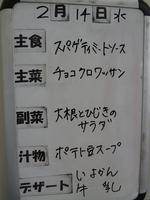 2月14日水
主食 スパゲティミートソース
主菜 チョコクロワッサン
副菜 大根とひじきの
サラダ
汁物 ポテト豆スープ
デザート いよかん
牛乳